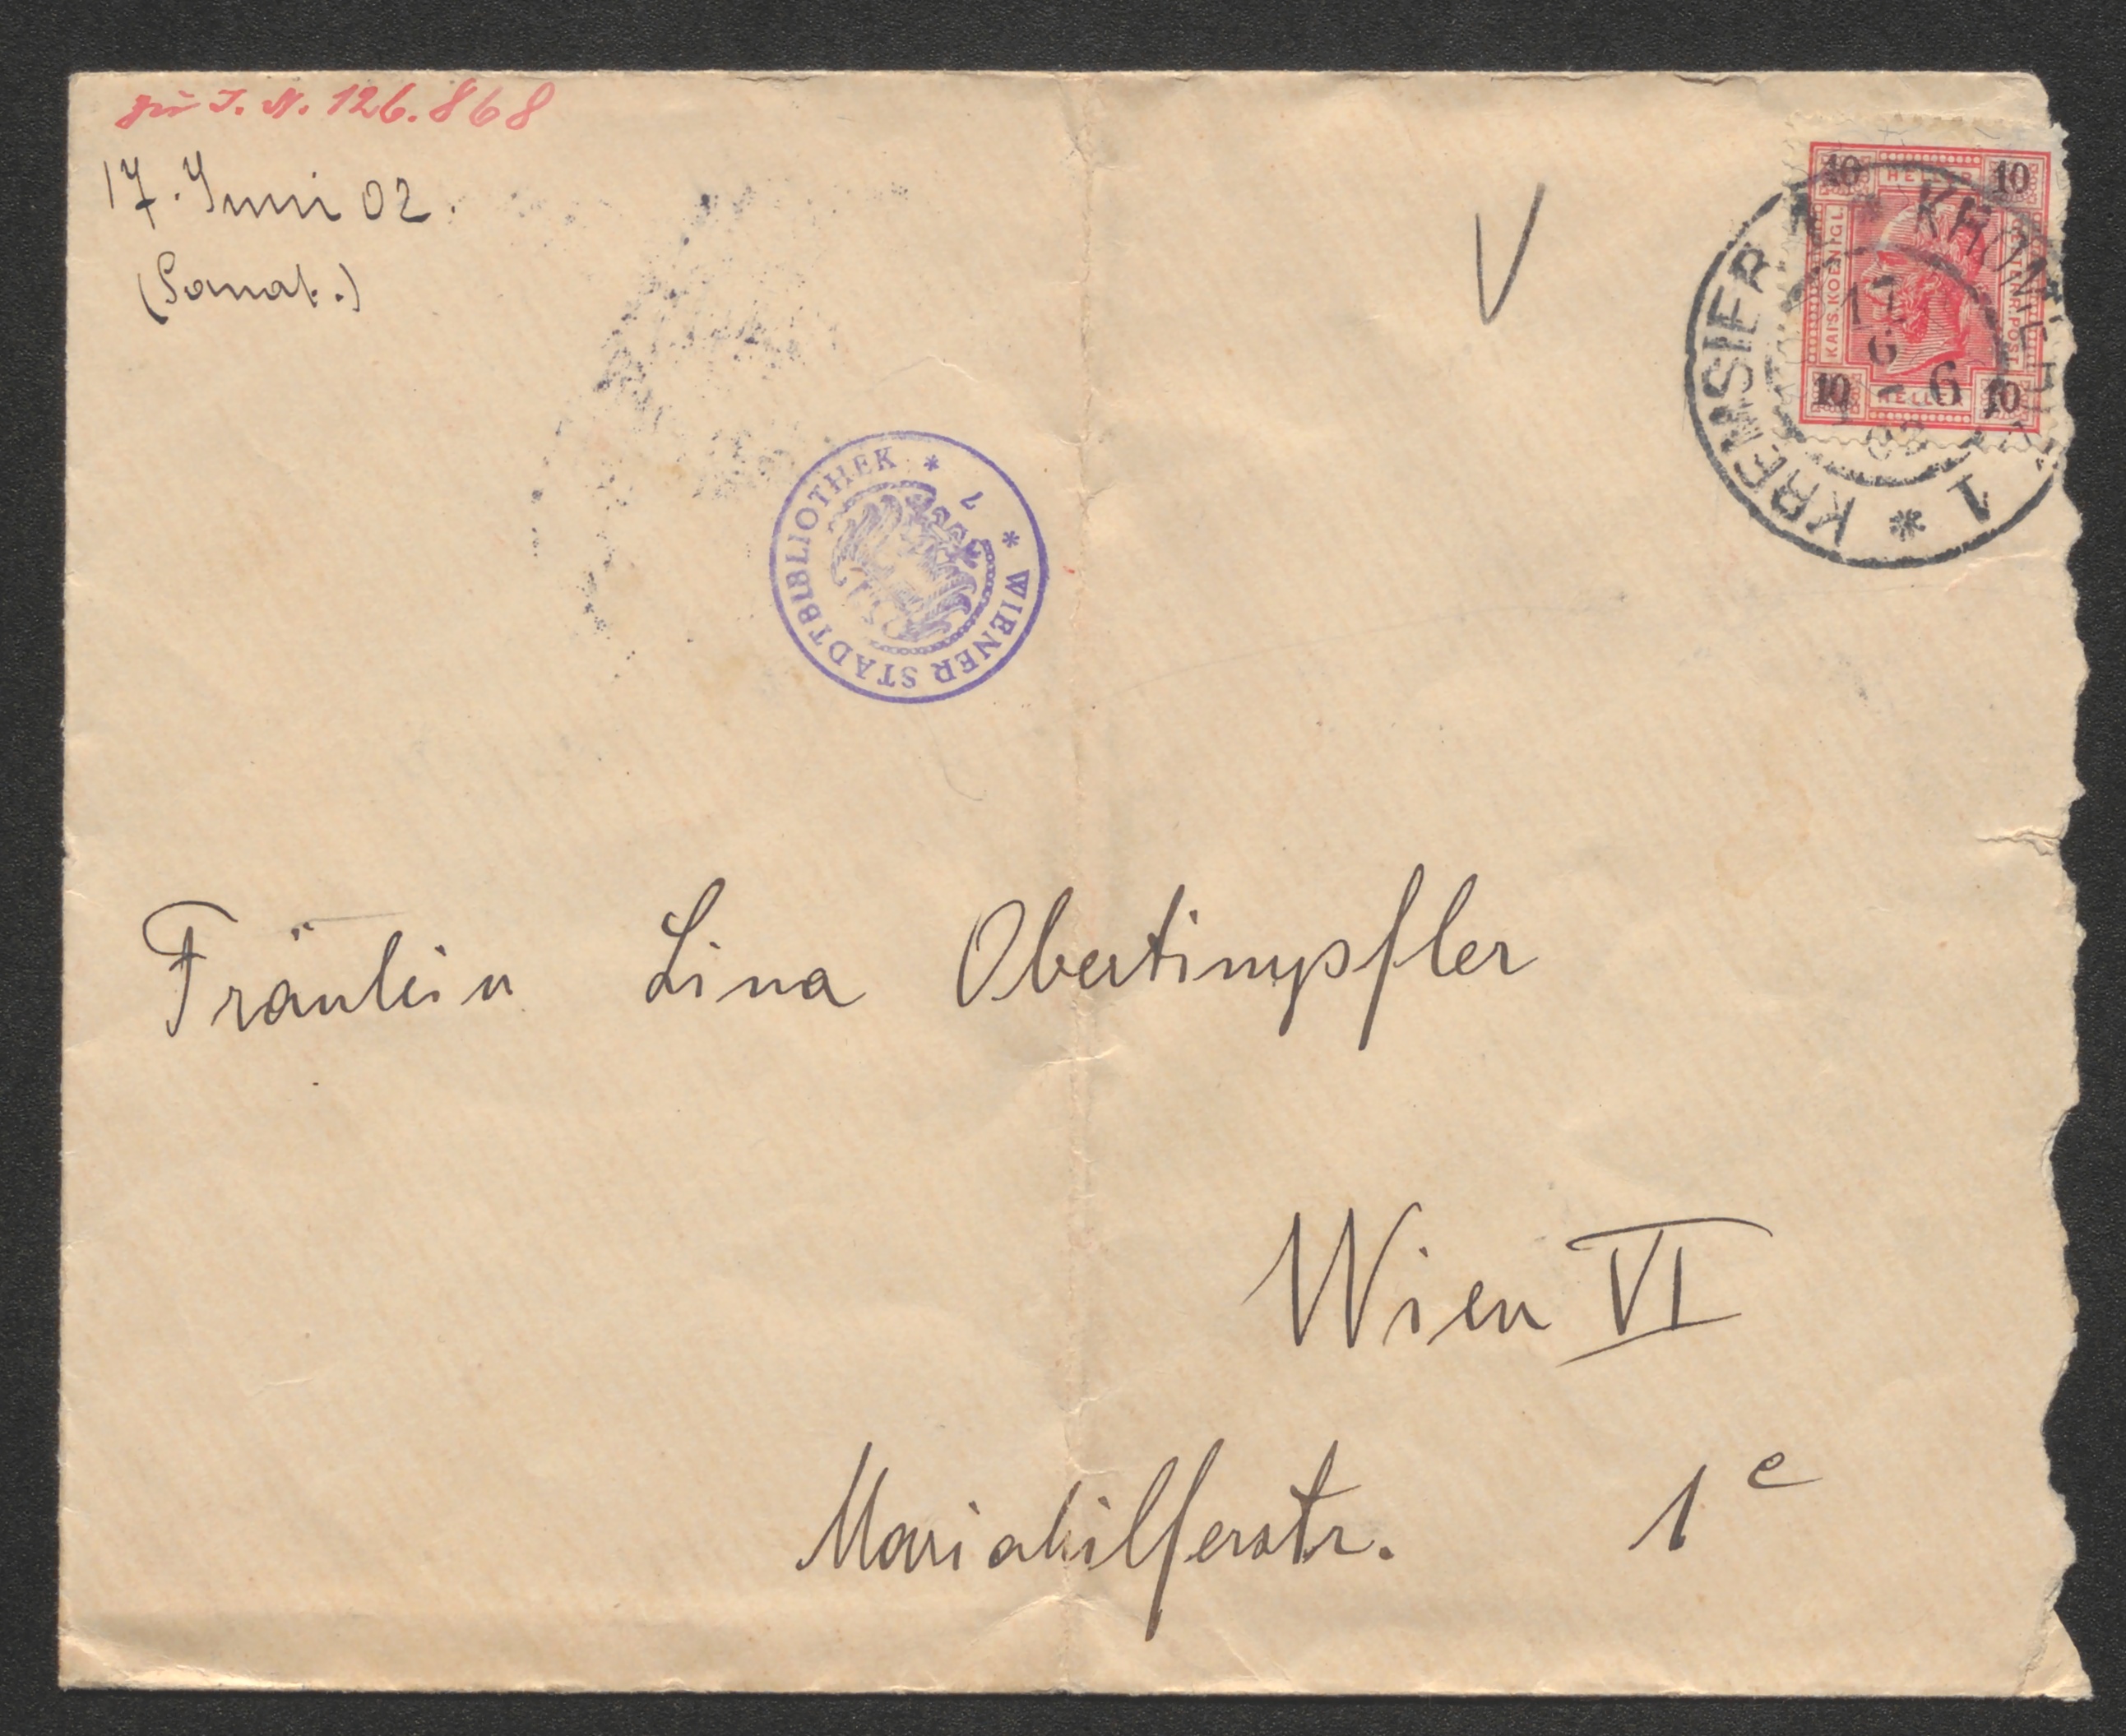 zu I. N. 126.868
17. Juni 02.
(Sanat.)
V
10 HELLER 10
KAIS. KOENIGL.
10 HELLER 10
KREMSIER 1 * KROMĚŘÍŽ 1 *
17
6
6
02
* WIENER STADTBIBLIOTHEK *
Fräulein Lina Obertimpfler
Wien VI
Mariahilferstr. 1e